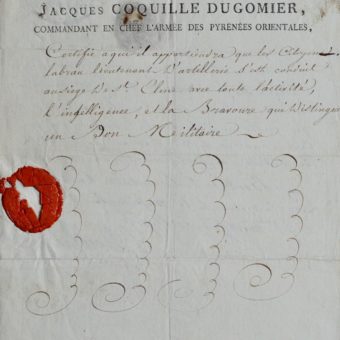 JACQUES COQUILLE DUGOMIER,
COMMANDANT EN CHEF L'ARMÉE DES PYRENÉES ORIENTALES,
Certifie a qu'il appartiendra que les Citoyen
labrau lieutenant D'artillerie S'est conduit
au siege De St. Elme avec toute l'activité,
l'intelligence, et la Bravoure qui Distingue
un Bon Militaire